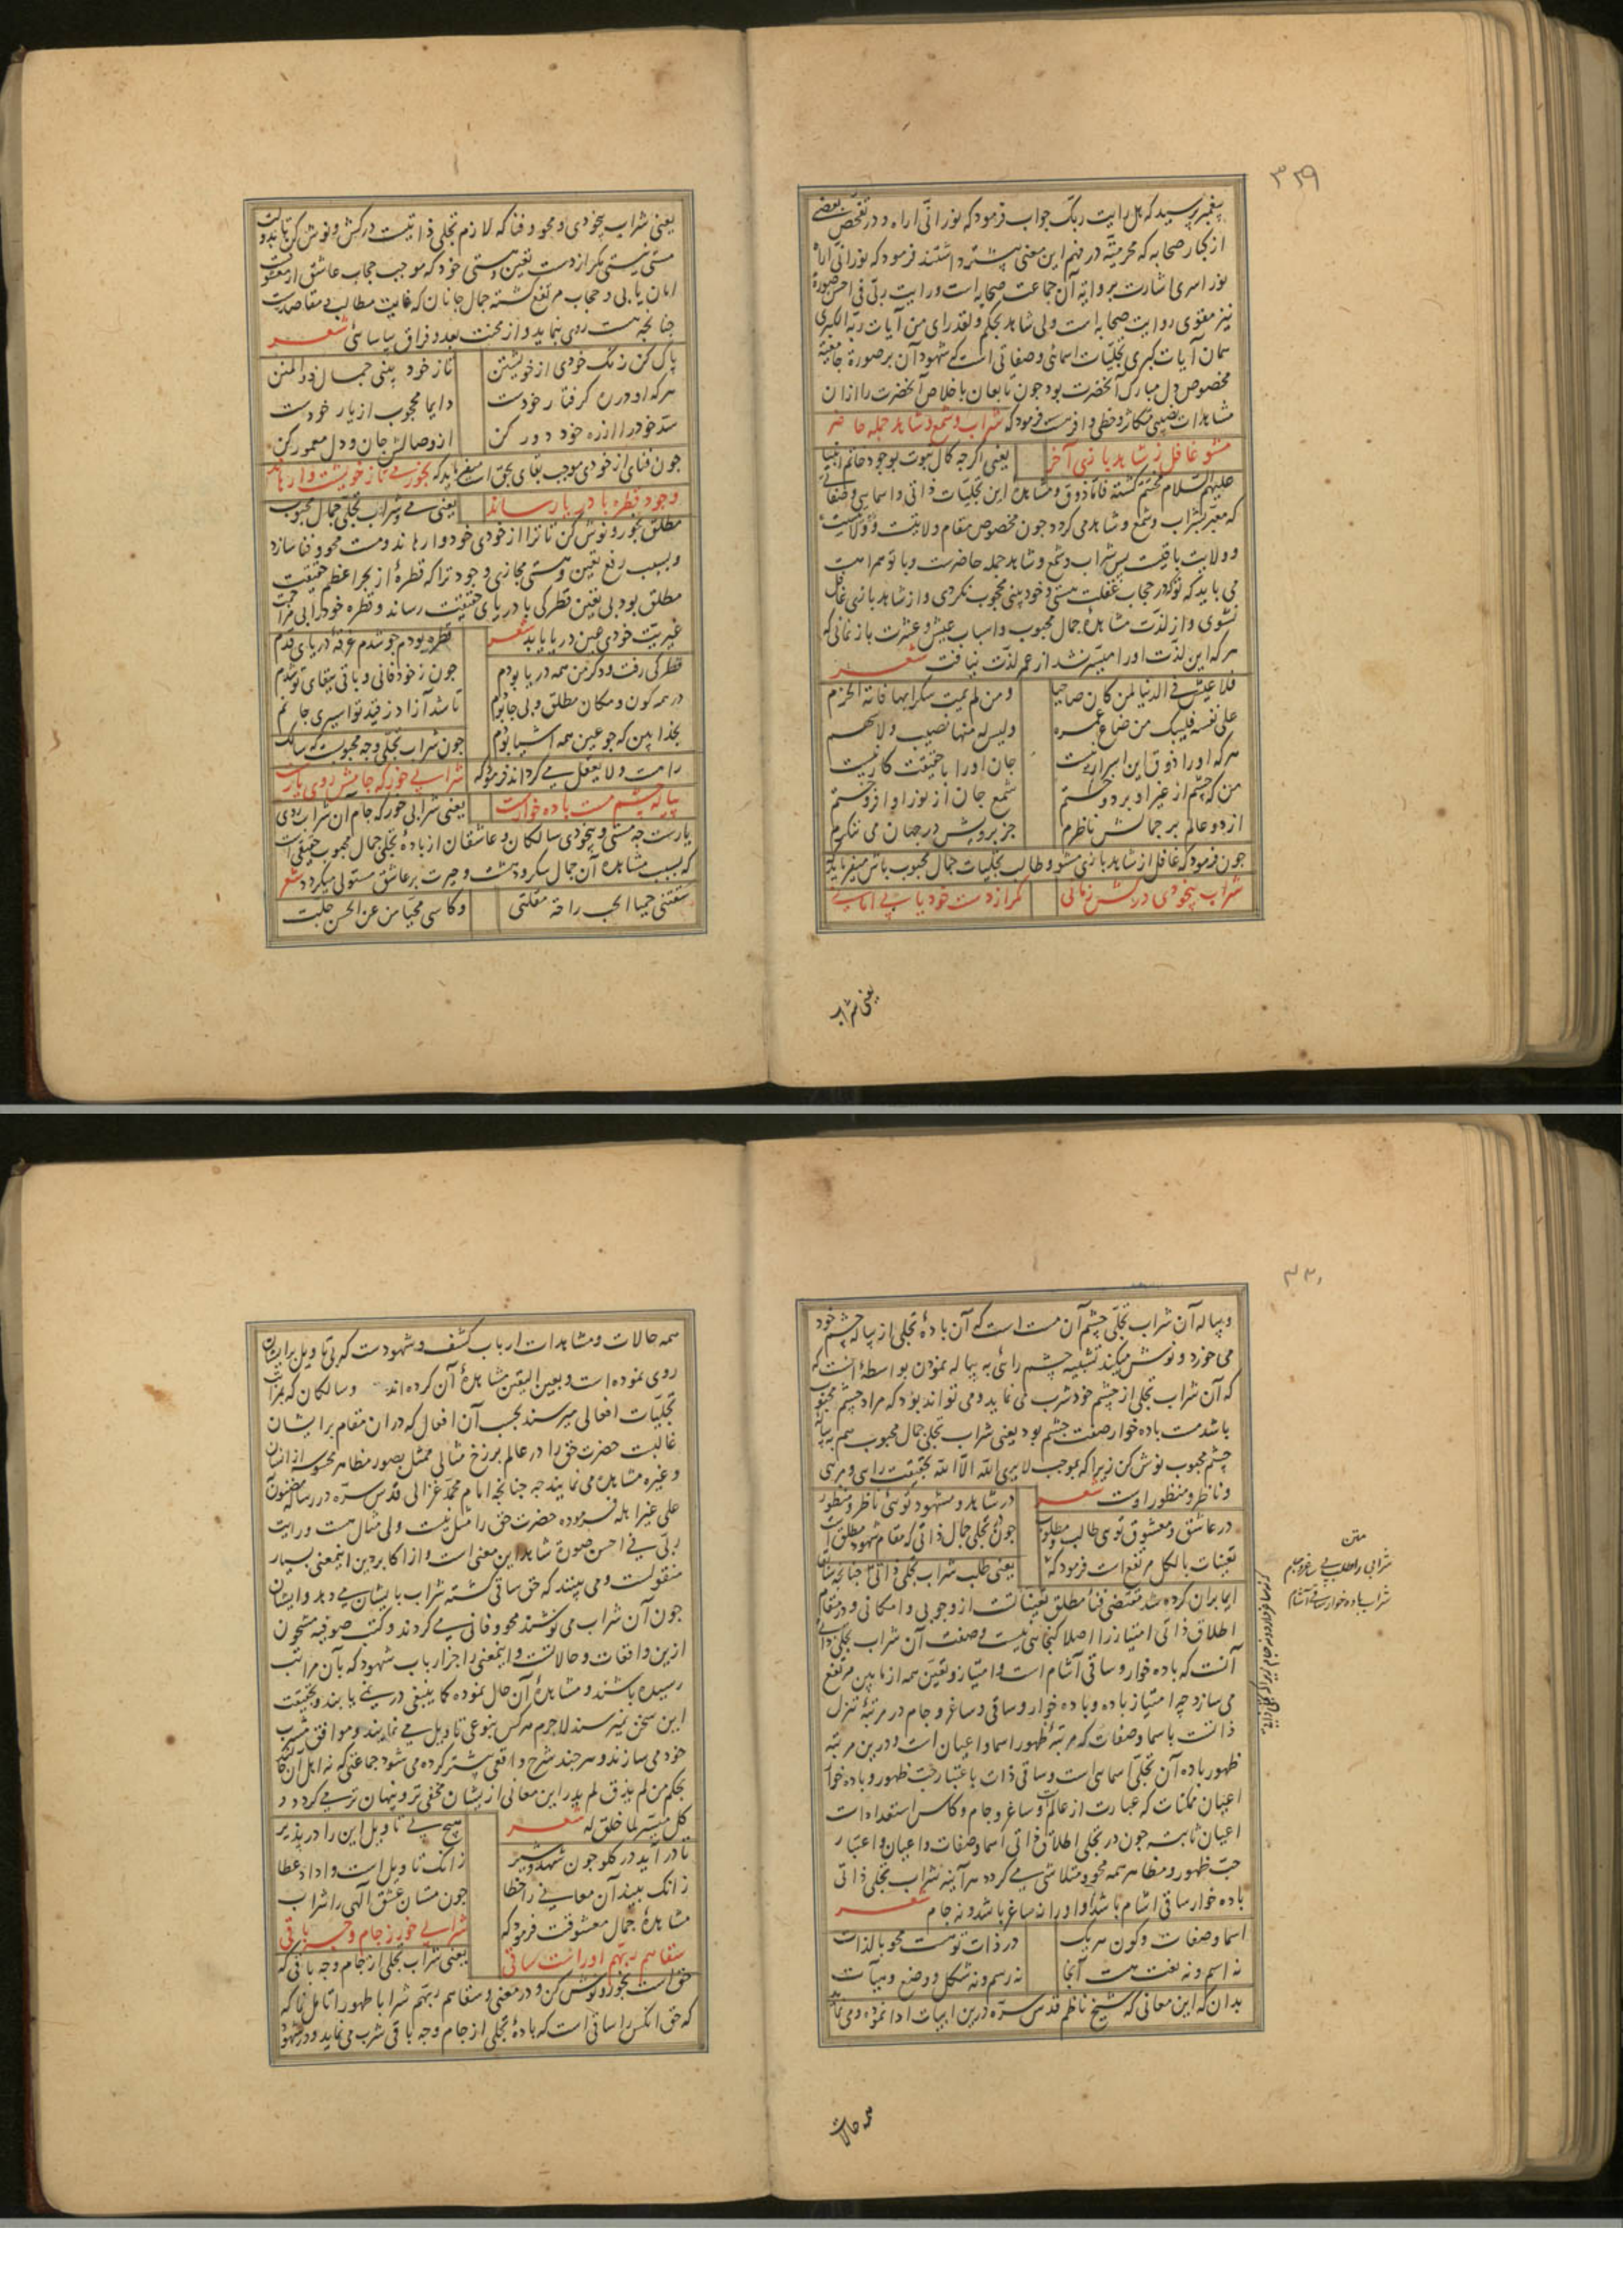 ۳۲۹
پیغمبر پرسید که هل رایت ربک جواب فرمود که نورانی اراه و در تفحص بعضی
از کبار صحابه که محرمیت در فهم این معنی بیشتر داشتند فرمود که نورانی اراه
نور اسری اشارت بروایه آن جماعت صحابه است و رایت ربی فی احسن صورة
نیز مقوی روایت صحابه است ولی شاهد بحکم ولقد رای من آیات ربه الکبری
همان آیات کبری تجلیات اسمائی و صفاتی است که شهود آن بر صورة جامعیه
مخصوص دل مبارک آنحضرت بود چون تابعان باخلاص آنحضرت را از ان
مشاهدات نصیبی متکاثر و حظی وافرست فرمود که شراب و شمع و شاهد جمله حاضر
مشو غافل ز شاهد بازی آخر یعنی اگرچه کمال نبوت بوجود خاتم انبیا
علیهم السلام مختتم گشته فاما ذوق و مشاهده این تجلیات ذاتی و اسمایی و صفاتی
که معبر بشراب و شمع و شاهد می کردد چون مخصوص مقام ولایتست
و ولایت باقیست پس شراب و شمع و شاهد جمله حاضرست و با تو همراهست
می باید که تو در حجاب غفلت هستی و خودبینی محجوب نکردی و از شاهد بازی غافل
نشوی و از لذت مشاهده جمال محبوب و اسباب عیش و عشرت باز نمانی که
هر که این لذت او را میسر نشد از عمر لذت نیافت شعر
فلا عیش فی الدنیا لمن کان صاحیا ومن لم یمت سکرا بها فاته الحزم
علی نفسه فلیبک من ضاع عمره ولیس له منها نصیب ولا سهم
هر که او را ذوق این اسرار نیست جان او را با حقیقت کار نیست
من که چشم از غیر او بر دوختم شمع جان از نور او افروختم
از دو عالم بر جمالش ناظرم جز برویش در جهان می ننکرم
چون فرمود که غافل از شاهد بازی مشو و طالب تجلیات جمال محبوب باش میفرماید که
شراب بیخودی درکش زمانی مکر از دست خود یابی امانی
یعنی شراب
یعنی شراب بیخودی و محو و فنا که لازم تجلی ذاتیست درکش و نوش کن تا بدولت
مستی نیستی مکر از دست تعین و هستی خود که موجب حجاب عاشق از معشوقست
امان یابی و حجاب مرتفع کشته جمال جانان که غایت مطالب و مقاصدست
چنانچه هست روی نماید و از محنت بعد و فراق بیاسائی شعر
پاک کن رنک خودی از خویشتن تا ز خود بینی جمال ذو المنن
هر که او در ره کرفتار خودست دایما محجوب از یار خودست
سد خود را از ره خود دور کن از وصالش جان و دل معمور کن
چون فنای از خودی موجب بقای بحق است میفرماید که بخور می تا ز خویشت وارهاند
وجود قطره با دریا رساند یعنی می و شراب تجلی جمال محبوب
مطلق بخور و نوش کن تا ترا از خودی خود وارهاند و مست محو و فنا سازد
و بسبب رفع تعین و هستی مجازی وجود ترا که قطرهٔ از بحر اعظم حقیقت
مطلق بود بی تعین قطرکی با دریای حقیقت رساند و قطره خود را بی مزاحمت
غیریت خودی عین دریا یابد شعر قطره بودم چو شدم غرقه دریای قدم
قطرکی رفت و دکر من همه دریا بودم چون ز خود فانی و باقی ببقای تو شدم
در همه کون و مکان مطلق و بی جا بودم تا شد آزاد ز قید تو اسیری جانم
بخدا ببین که چو عین همه اشیا بودم چون شراب تجلی وجه محبوبست که سالک
را مست و لایعقل می کرداند فرمود که شرابی خور که جامش روی یارست
پیاله چشم مست باده خوارست یعنی شرابی خور که جام آن شراب روی
یارست چه مستی و بیخودی سالکان و عاشقان از بادهٔ تجلی جمال محبوب حقیقی است
که بسبب مشاهده آن جمال سکر و دهشت و حیرت بر عاشق مستولی میکردد شعر
سقتنی حمیا الحب راحة مقلتی وکاسی محیا من عن الحسن جلت
۳۳۰
و پیاله آن شراب تجلی چشم آن مست است که آن بادهٔ تجلی از پیاله چشم خود
می خورد و نوش میکند تشبیه چشم رائی به پیاله نمودن بواسطهٔ آنست که
که آن شراب تجلی از چشم خود شرب می نماید و می تواند بود که مراد چشم محبوب
باشد مست باده خوار صفت چشم بود یعنی شراب تجلی جمال محبوب هم به پیاله
چشم محبوب نوش کن زیرا که بموجب لا یری الله الا الله بحقیقت رایی و مرئی
و ناظر و منظور اوست شعر در شاهد و مشهود توئی ناظر و منظور
در عاشق و معشوق توی طالب و مطلوب چون تجلی جمال ذاتی که مقام شهود مطلق است
تعینات بالکل مرتفع است فرمود که یعنی طلب شراب تجلی ذاتی چنانچه سابقا
ایما بران کرده شد مقتضی فناء مطلق تعیناتست از وجوبی و امکانی و در مقام
اطلاق ذاتی امتیاز را اصلا کنجایی نیست و صفت آن شراب تجلی ذاتی
آنست که باده خوار و ساقی آشام است و امتیاز و تعین همه از مابین مرتفع
می سازد چه امتیاز باده و باده خوار و ساقی و ساغر و جام در مرتبهٔ تنزل
ذاتست باسما و صفات که مرتبهٔ ظهور اسما و اعیان است و درین مرتبه
ظهور باده آن تجلی اسمایی است و ساقی ذات باعتبار حب ظهور و باده خوار
اعیان ممکنات که عبارت از عالمست و ساغر و جام و کاس استعدادات
اعیان ثابته چون در تجلی اطلاقی ذاتی اسما و صفات و اعیان و اعتبار
حب ظهور و مظاهر همه محو و متلاشی می کردد هر آینه شراب تجلی ذاتی
باده خوار ساقی آشام باشد و او را نه ساغر باشد و نه جام شعر
اسما و صفات و کون هر یک در ذات تو هست محو بالذات
نه اسم و نه نعت هست آنجا نه رسم و نه شکل و وضع و هیآت
بدان که این معانی که شیخ ناظم قدس سره درین ابیات ادا نموده و می نماید
متن
شرابی را طلب بی ساغر و جام
شراب باده خوار ساقی آشام
همه حالات
همه حالات و مشاهدات ارباب کشف و شهودست که بی تاویل برایشان
روی نموده است و بعین الیقین مشاهدهٔ آن کرده اند و سالکان که بمراتب
تجلیات افعالی میرسند بحسب آن افعال که دران مقام برایشان
غالبست حضرت حق را در عالم برزخ مثالی ممثل بصور مظاهر محسوسه از انسان
و غیره مشاهده می نمایند چه چنانچه امام محمد غزالی قدس سره در رساله مضنون
علی غیر اهله فرموده حضرت حق را مثل نیست ولی مثال هست و رایت
ربی فی احسن صورة شاهد این معنی است و از اکابر دین اینمعنی بسیار
منقولست و می بینند که حق ساقی کشته شراب بایشان می دهد و ایشان
چون آن شراب می نوشند محو و فانی می کردند و کتب صوفیه مشحون
ازین واقعات و حالاتست و اینمعنی را جز ارباب شهود که بآن مراتب
رسیده باشند و مشاهدهٔ آن حال نموده کما ینبغی در نمی یابند و بحقیقت
این سخن نمیرسند لاجرم هر کس بنوعی تاویل می نمایند و موافق مشرب
خود می سازند و هر چند شرح واقعی بیشتر کرده می شود جماعتی که نه اهل آن کارند
بحکم من لم یذق لم یدر این معانی ازیشان مخفی تر و پنهان تر می کردد و
کل میسر لما خلق له شعر هیچ بی تاویل این را در پذیر
تا در آید در کلو چون شهد و شیر زانک تاویل است و ادا عطا
زانک بیند آن معانی را خطا چون مستان عشق آلهی را شراب
مشاهدهٔ جمال معشوقست فرمود که شرابی خور ز جام وجه باقی
سقاهم ربهم او راست ساقی یعنی شراب تجلی از جام وجه باقی که
حق است بخور و نوش کن و در معنی و سقاهم ربهم شرابا طهورا تامل نما که
که حق آنکس را ساقی است که بادهٔ تجلی از جام وجه باقی شرب می نماید و در شهود